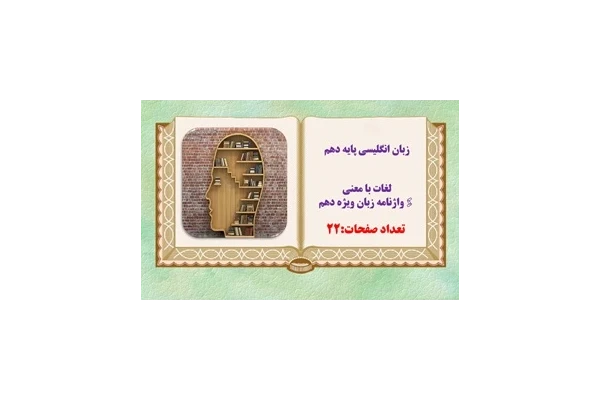 زبان انگلیسی پایه دهم
لغات با معنی
واژنامه زبان ویژه دهم
تعداد صفحات:۲۲